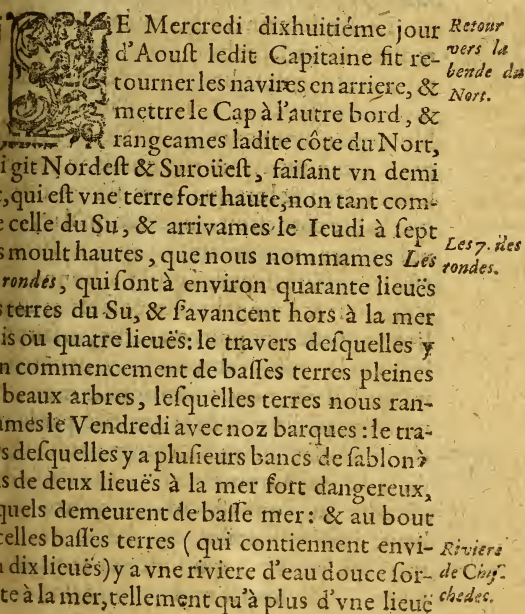 LE Mercredi dixhuitiéme jour
d'Aouſt ledit Capitaine fit re-
tourner les navires en arriere, &
mettre le Cap à l'autre bord, &
rangeames ladite côte du Nort,
i git Nordeſt & Suroüeſt, faiſant vn demi
, qui eſt vne terre fort haute, non tant com-
e celle du Su, & arrivames le Ieudi à ſept
s moult hautes, que nous nommames Les
rondes, qui ſont à environ quarante lieuës
s terres du Su, & ſ'avancent hors à la mer
is ou quatre lieuës: le travers deſquelles y
n commencement de baſſes terres pleines
beaux arbres, leſquelles terres nous ran-
ames le Vendredi avec noz barques: le tra-
s deſquelles y a pluſieurs bancs de ſablon
s de deux lieuës à la mer fort dangereux,
quels demeurent de baſſe mer: & au bout
celles baſſes terres (qui contiennent envi-
n dix lieuës) y a vne riviere d'eau douce ſor-
te à la mer, tellement qu'à plus d'vne lieuë
Retour
vers la
bende du
Nort.
Les 7. iles
rondes.
Riviere
de Chiſ-
chedec.